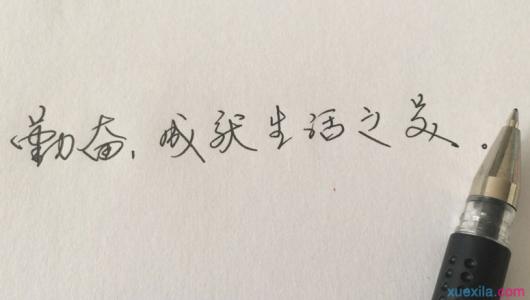 勤奋，成就生活之美。
xuexila.com